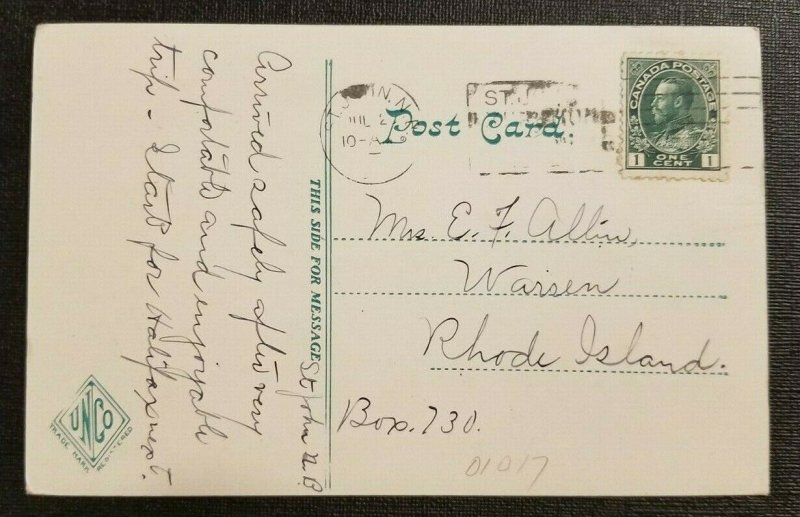 St John N.B.
Arrived safely after very
comfortable and enjoyable
trip - Start for Halifax next.
THIS SIDE FOR MESSAGE
UNCO
TRADE MARK REGISTERED
Post Card.
CANADA POSTAGE
1 ONE CENT 1
ST. J
10-A
Mrs. E. F. Albin,
Warren
Rhode Island.
Box. 730.
01017